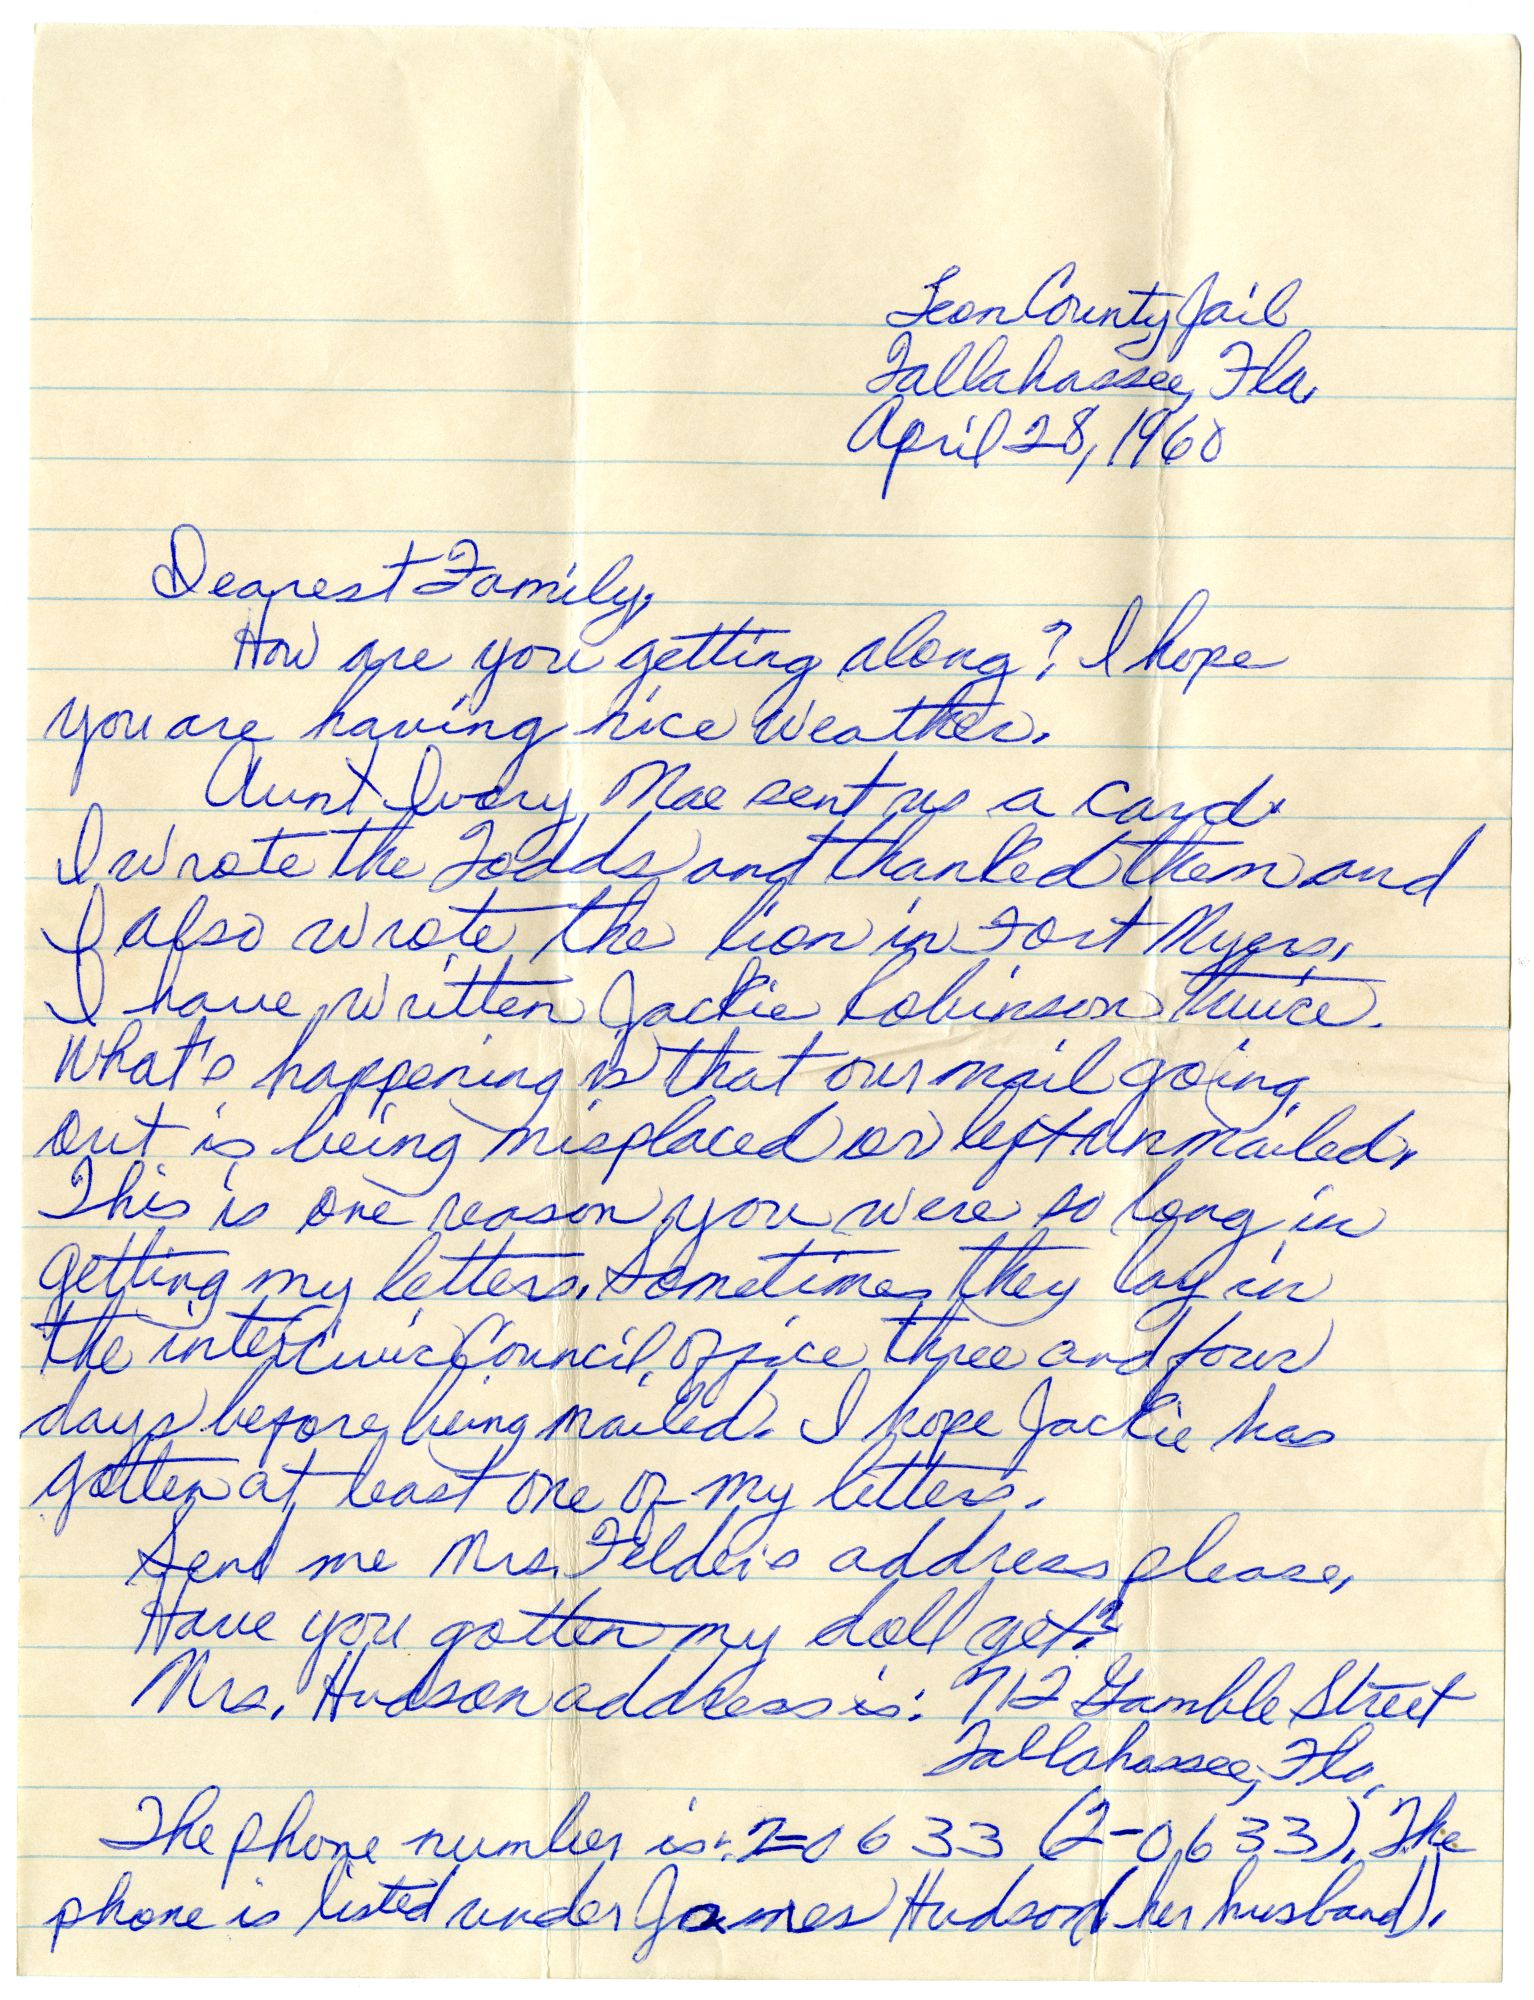 Leon County Jail
Tallahassee, Fla.
April 28, 1960
Dearest Family,
How are you getting along? I hope
you are having nice weather.
Aunt Ivory Mae sent us a card.
I wrote the Todds and thanked them and
I also wrote the lion in Fort Myers.
I have written Jackie Robinson twice.
What's happening is that our mail going
out is being misplaced or left unmailed.
This is one reason you were so long in
getting my letters. Sometimes they lay in
the inter Civic Council office three and four
days before being mailed. I hope Jackie has
gotten at least one of my letters.
Send me Mrs. Felder's address please.
Have you gotten my doll yet?
Mrs. Hudson address is: 712 Gamble Street
Tallahassee, Fla.
The phone number is: 2-0633 (2-0633). The
phone is listed under James Hudson (her husband).